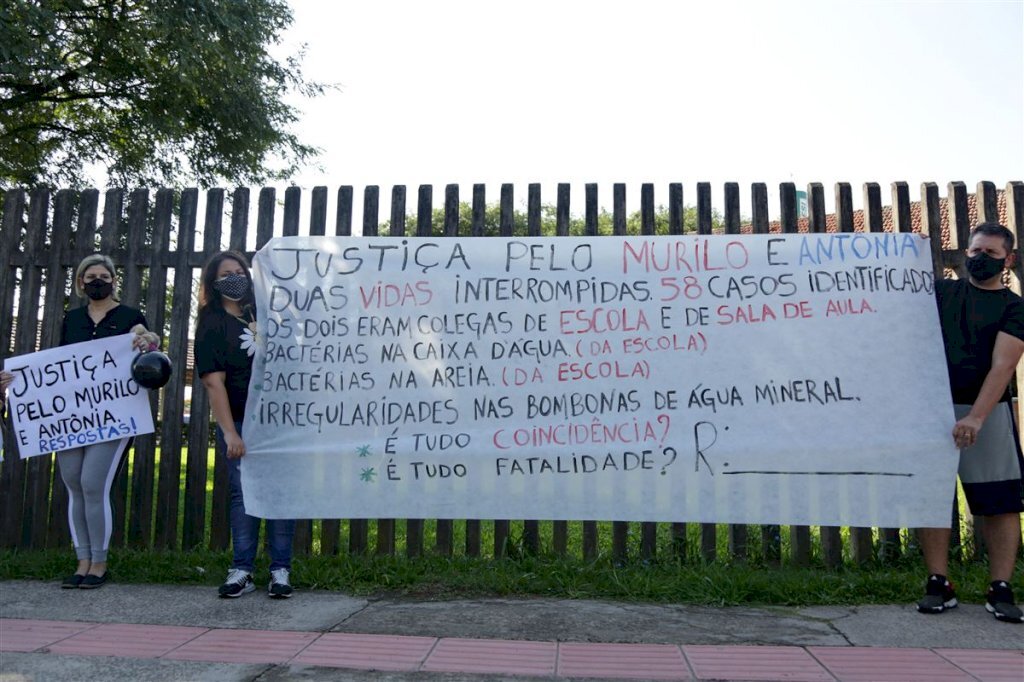 JUSTIÇA PELO MURILO E ANTÔNIA
DUAS VIDAS INTERROMPIDAS. 58 CASOS IDENTIFICADOS
OS DOIS ERAM COLEGAS DE ESCOLA E DE SALA DE AULA.
BACTÉRIAS NA CAIXA D'ÁGUA. (DA ESCOLA)
BACTÉRIAS NA AREIA. (DA ESCOLA)
IRREGULARIDADES NAS BOMBONAS DE ÁGUA MINERAL.
* É TUDO COINCIDÊNCIA?
* É TUDO FATALIDADE? R:
JUSTIÇA
PELO MURILO
E ANTÔNIA.
RESPOSTAS!